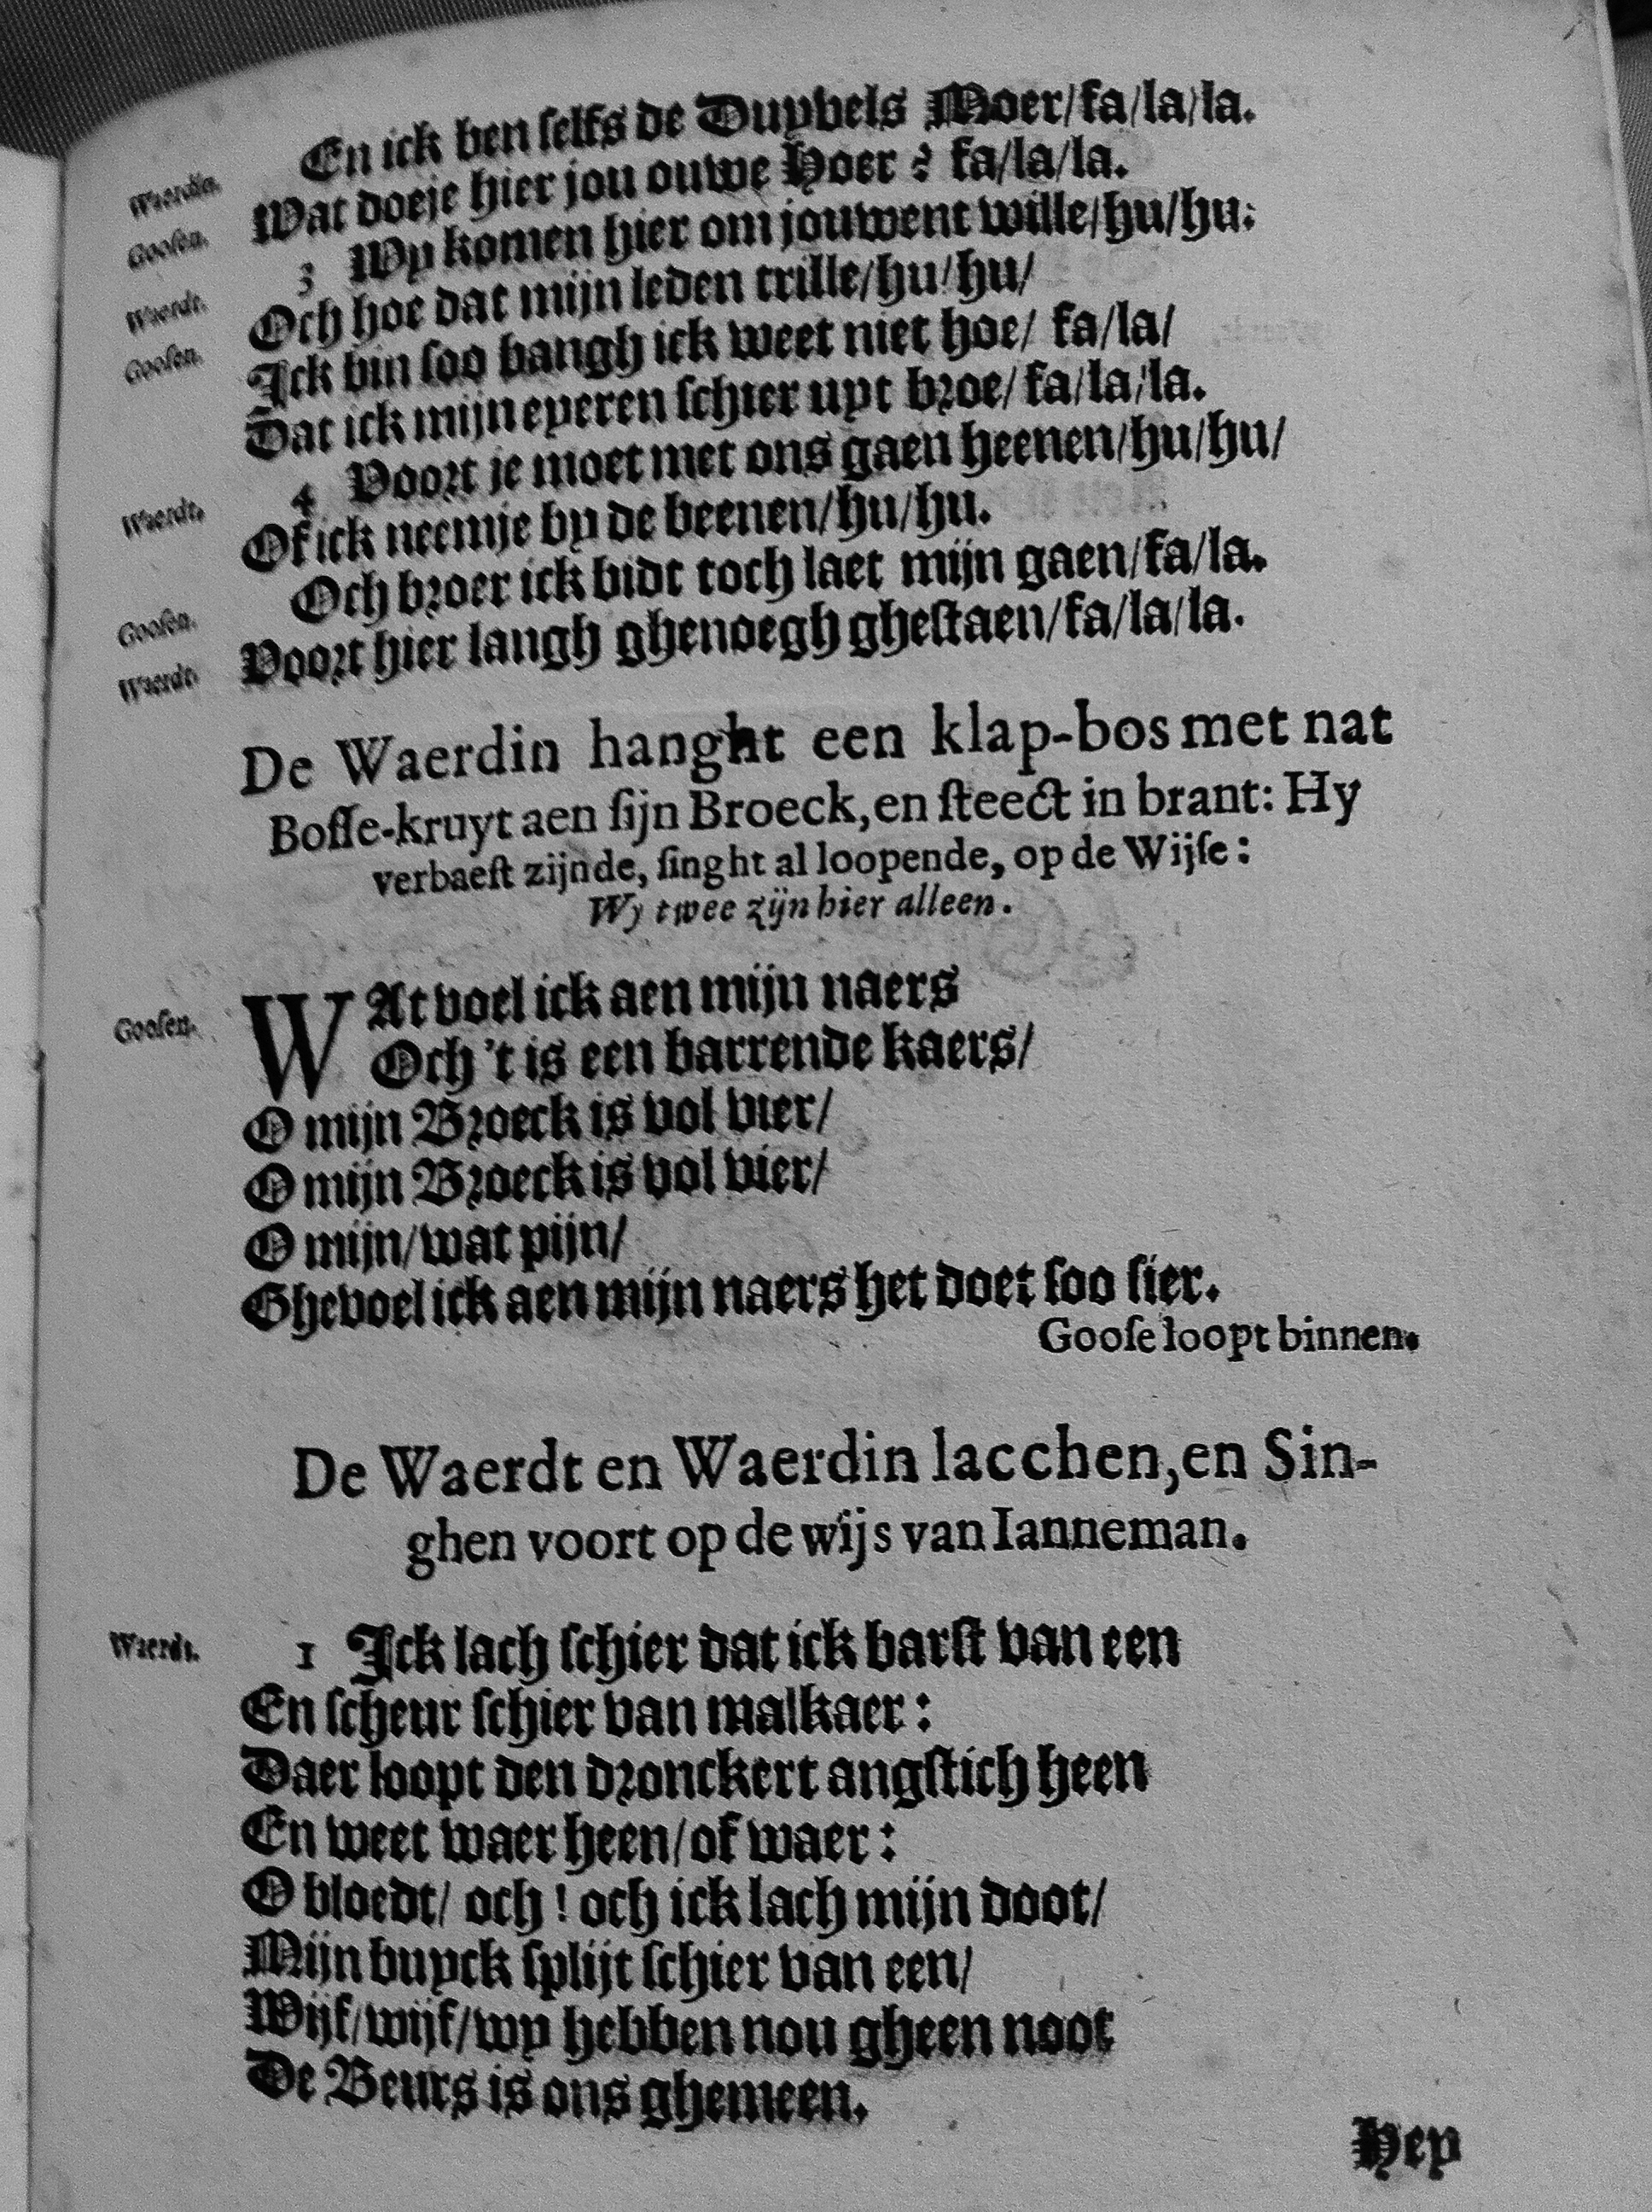 Waerdin. En ick ben ſelfs de Duyvels Moer/fa/la/la.
Gooſen. Wat doeje hier jou ouwe Hoer? fa/la/la.
Waerdt. 3 Wy komen hier om jouwent wille/hu/hu:
Gooſen. Och hoe dat mijn leden trille/hu/hu/
Ick bin ſoo bangh ick weet niet hoe/ fa/la/
Dat ick mijn eyeren ſchier uyt broe/ fa/la/la.
Waerdt. 4 Voort je moet met ons gaen heenen/hu/hu/
Of ick neemje by de beenen/hu/hu.
Gooſen. Och broer ick bidt toch laet mijn gaen/fa/la.
Waerdt. Voort hier langh ghenoegh gheſtaen/fa/la/la.
De Waerdin hanght een klap-bos met nat
Boſſe-kruyt aen ſijn Broeck, en ſteect in brant: Hy
verbaeſt zijnde, ſinght al loopende, op de Wijſe:
Wy twee zijn hier alleen.
Gooſen. WAt voel ick aen mijn naers
Och 't is een barrende kaers/
O mijn Broeck is vol vier/
O mijn Broeck is vol vier/
O mijn/wat pijn/
Ghevoel ick aen mijn naers het doet ſoo ſier.
Gooſe loopt binnen.
De Waerdt en Waerdin lacchen, en Sin-
ghen voort op de wijs van Ianneman.
Waerdt. 1 Ick lach ſchier dat ick barſt van een
En ſcheur ſchier van malkaer:
Daer loopt den dronckert angſtich heen
En weet waer heen/of waer:
O bloedt/ och! och ick lach mijn doot/
Mijn buyck ſplijt ſchier van een/
Wijf/wijf/wy hebben nou gheen noot
De Beurs is ons ghemeen.
Hey